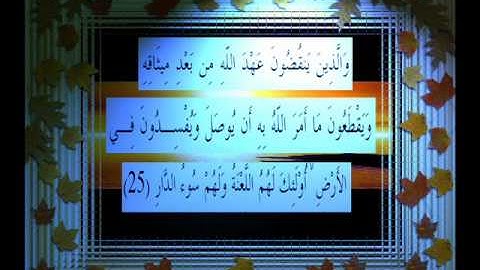 وَالَّذِينَ يَنقُضُونَ عَهْدَ اللَّهِ مِن بَعْدِ مِيثَاقِهِ
وَيَقْطَعُونَ مَا أَمَرَ اللَّهُ بِهِ أَن يُوصَلَ وَيُفْسِــدُونَ فِــي
الأَرْضِ ۙ أُوْلَئِكَ لَهُمُ اللَّعْنَةُ وَلَهُمْ سُوءُ الدَّارِ (25)